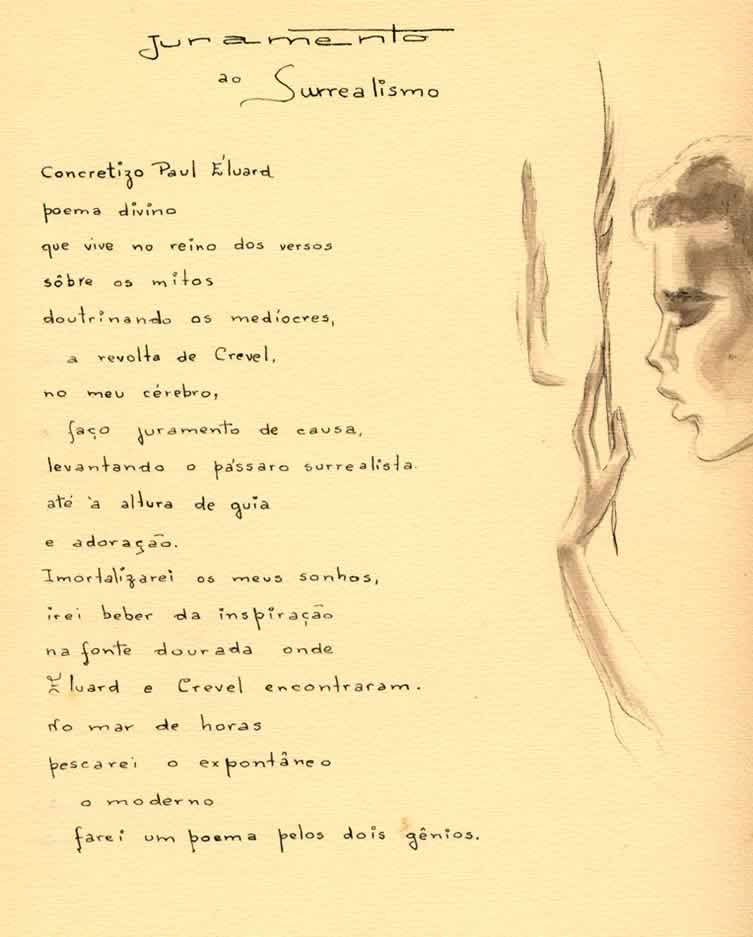 Juramento
ao Surrealismo
Concretizo Paul Éluard
poema divino
que vive no reino dos versos
sôbre os mitos
doutrinando os medíocres,
a revolta de Crevel,
no meu cérebro,
faço juramento de causa,
levantando o pássaro surrealista
até à altura de guia
e adoração.
Imortalizarei os meus sonhos,
irei beber da inspiração
na fonte dourada onde
Éluard e Crevel encontraram.
No mar de horas
pescarei o expontâneo
o moderno
farei um poema pelos dois gênios.